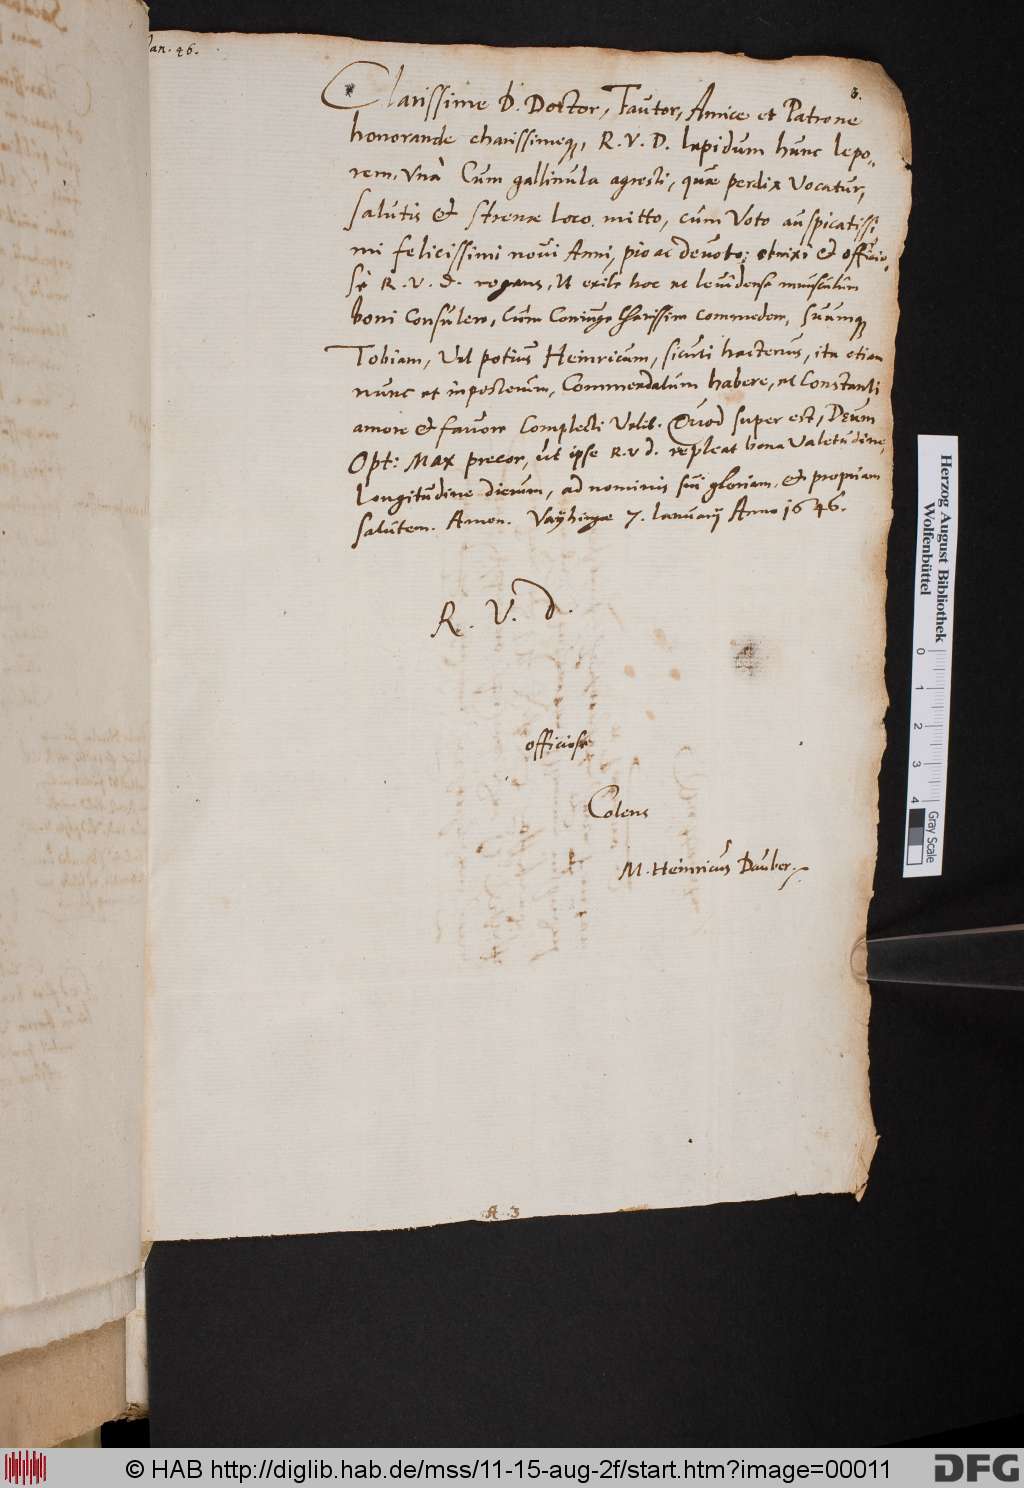 Jan. 46.
3.
Clarissime D. Doctor, Fautor, Amice et Patrone
honorande charissimeq;, R. V. D. lapidum hunc lepo-
rem, Unà Cum gallinula agresti, quæ perdix Vocatur,
salutis et strenæ loco mitto, cum Voto auspicatissi
mi felicissimi novi Anni, pio ac devoto; enixè et officio-
sè R. V. D. rogans, Ut exile hoc ac levidense munusculum
boni Consulere, Cum Coniuge Charissima commedere, suumq;
Tobiam, Vel potius Heinricum, sicuti hactenus, ita etiam
nunc et inposterum, Commendatum habere, et Constanti
amore et favore Complecti Velit. Quod super est, Deum
Opt: Max precor, ut ipse R. V. D. repleat bona Valetudine,
longitudine dierum, ad nominis sui gloriam, et propriam
salutem. Amen. Vayhingæ 7. Ianuarij Anno 1646.
R. V. D.
officiose
Colens
M. Heinricus Dauber
A. 3
Herzog August Bibliothek
Wolfenbüttel
0 1 2 3 4
Gray Scale
© HAB http://diglib.hab.de/mss/11-15-aug-2f/start.htm?image=00011
DFG